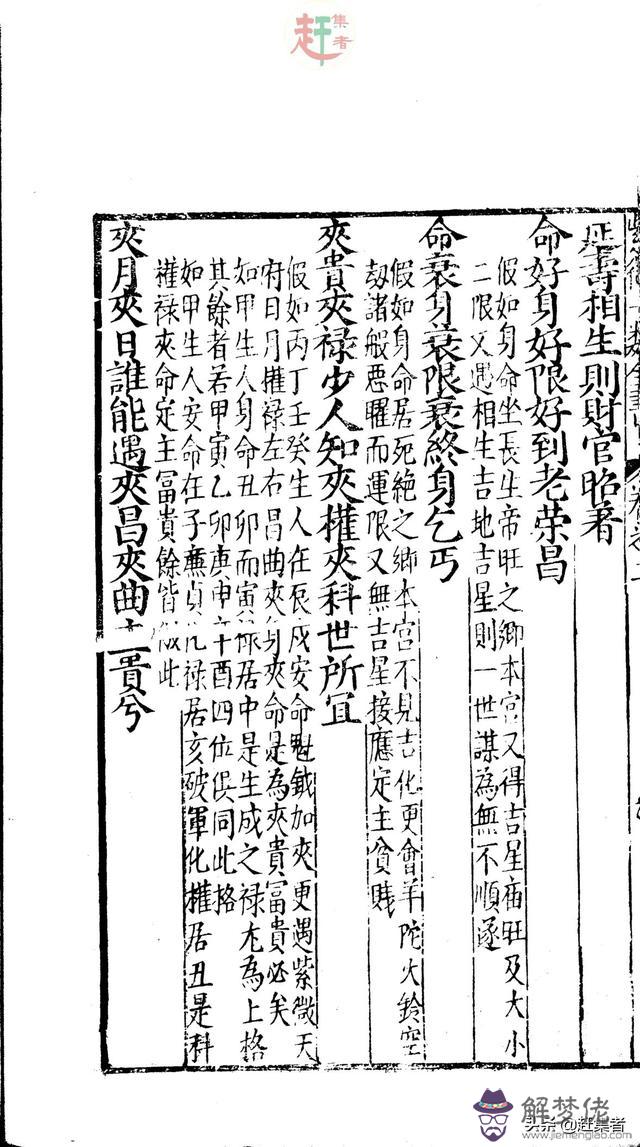 赶集者
延壽相生則財官昭著
命好身好限好到老荣昌
假如身命坐長生帝旺之鄉本宮又得吉星廟旺及大小
二限又遇相生吉地吉星則一世謀為無不順遂
命衰身衰限衰終身乞丐
假如身命居死絶之鄉本宮不見吉化更會羊陀火鈴空
劫諸般惡曜而運限又無吉星接應定主貧賎
夾貴夾禄少人知夾權夾科世所宜
假如丙丁壬癸生人在辰戌安命魁鉞加夾更遇紫微天
府日月權禄左右昌曲夾身夾命是為夾貴冨貴必矣
如甲生人身命丑卯而寅禄居中是生成之禄尤為上格
其餘者若甲寅乙卯庚申辛酉四位俱同此格
如甲生人安命在子廉貞化禄居亥破軍化權居丑是科
權禄夾命定主冨貴餘皆倣此
夾月夾日誰能遇夾昌夾曲主貴兮
解梦佬
www.jiemengloo.com
头条@赶集者